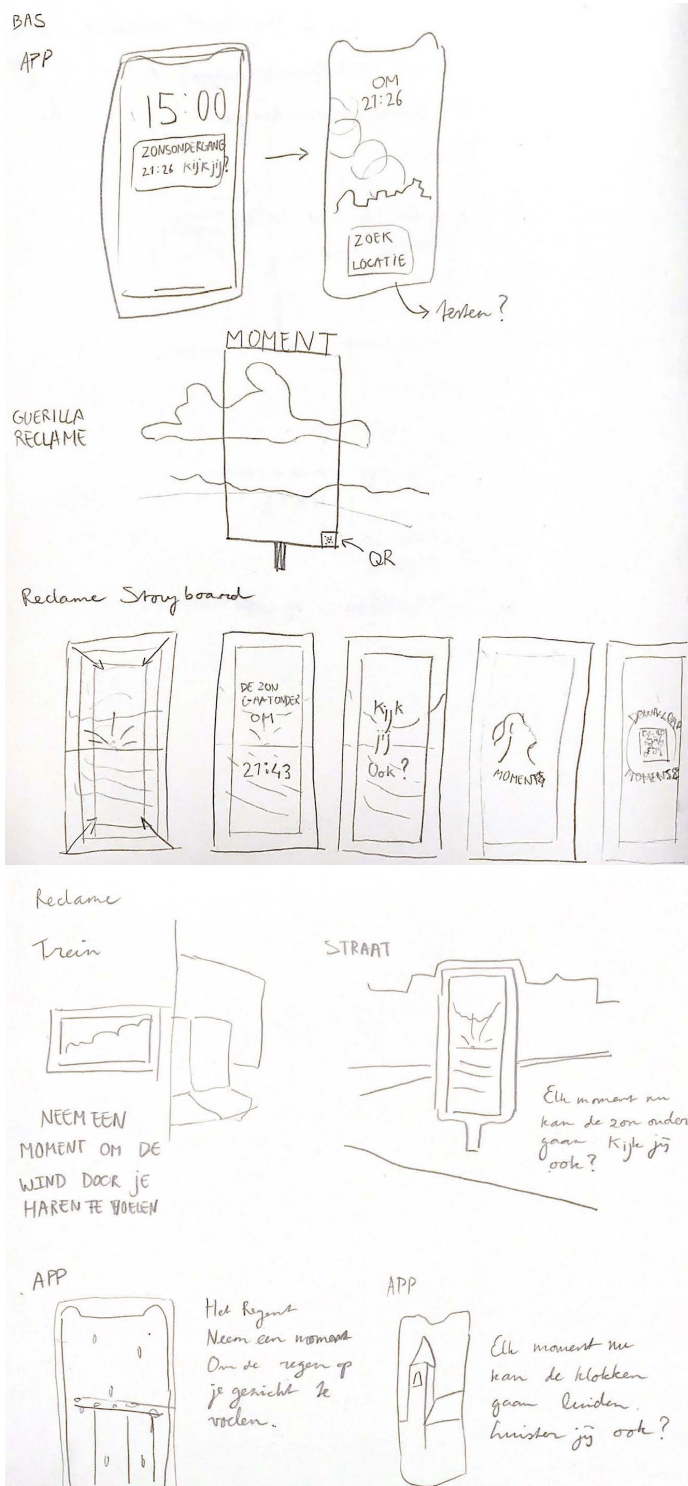 BAS
APP
15:00
ZONSONDERGANG
21:26 kijk jij?
OM
21:26
ZOEK
LOCATIE
testen?
MOMENT
GUERILLA
RECLAME
QR
Reclame Storyboard
DE ZON
GAAT ONDER
OM
21:43
Kijk
jij
Ook?
MOMENTS
DOWNLOAD
MOMENTS
Reclame
Trein
NEEM EEN
MOMENT OM DE
WIND DOOR jE
HAREN TE VOELEN
STRAAT
Elk moment nu
kan de zon onder
gaan Kijk jij
ook?
APP
Het Regent
Neem een moment
Om de regen op
je gezicht te
voelen.
APP
Elk moment nu
kan de klokken
gaan luiden.
Luister jij ook?